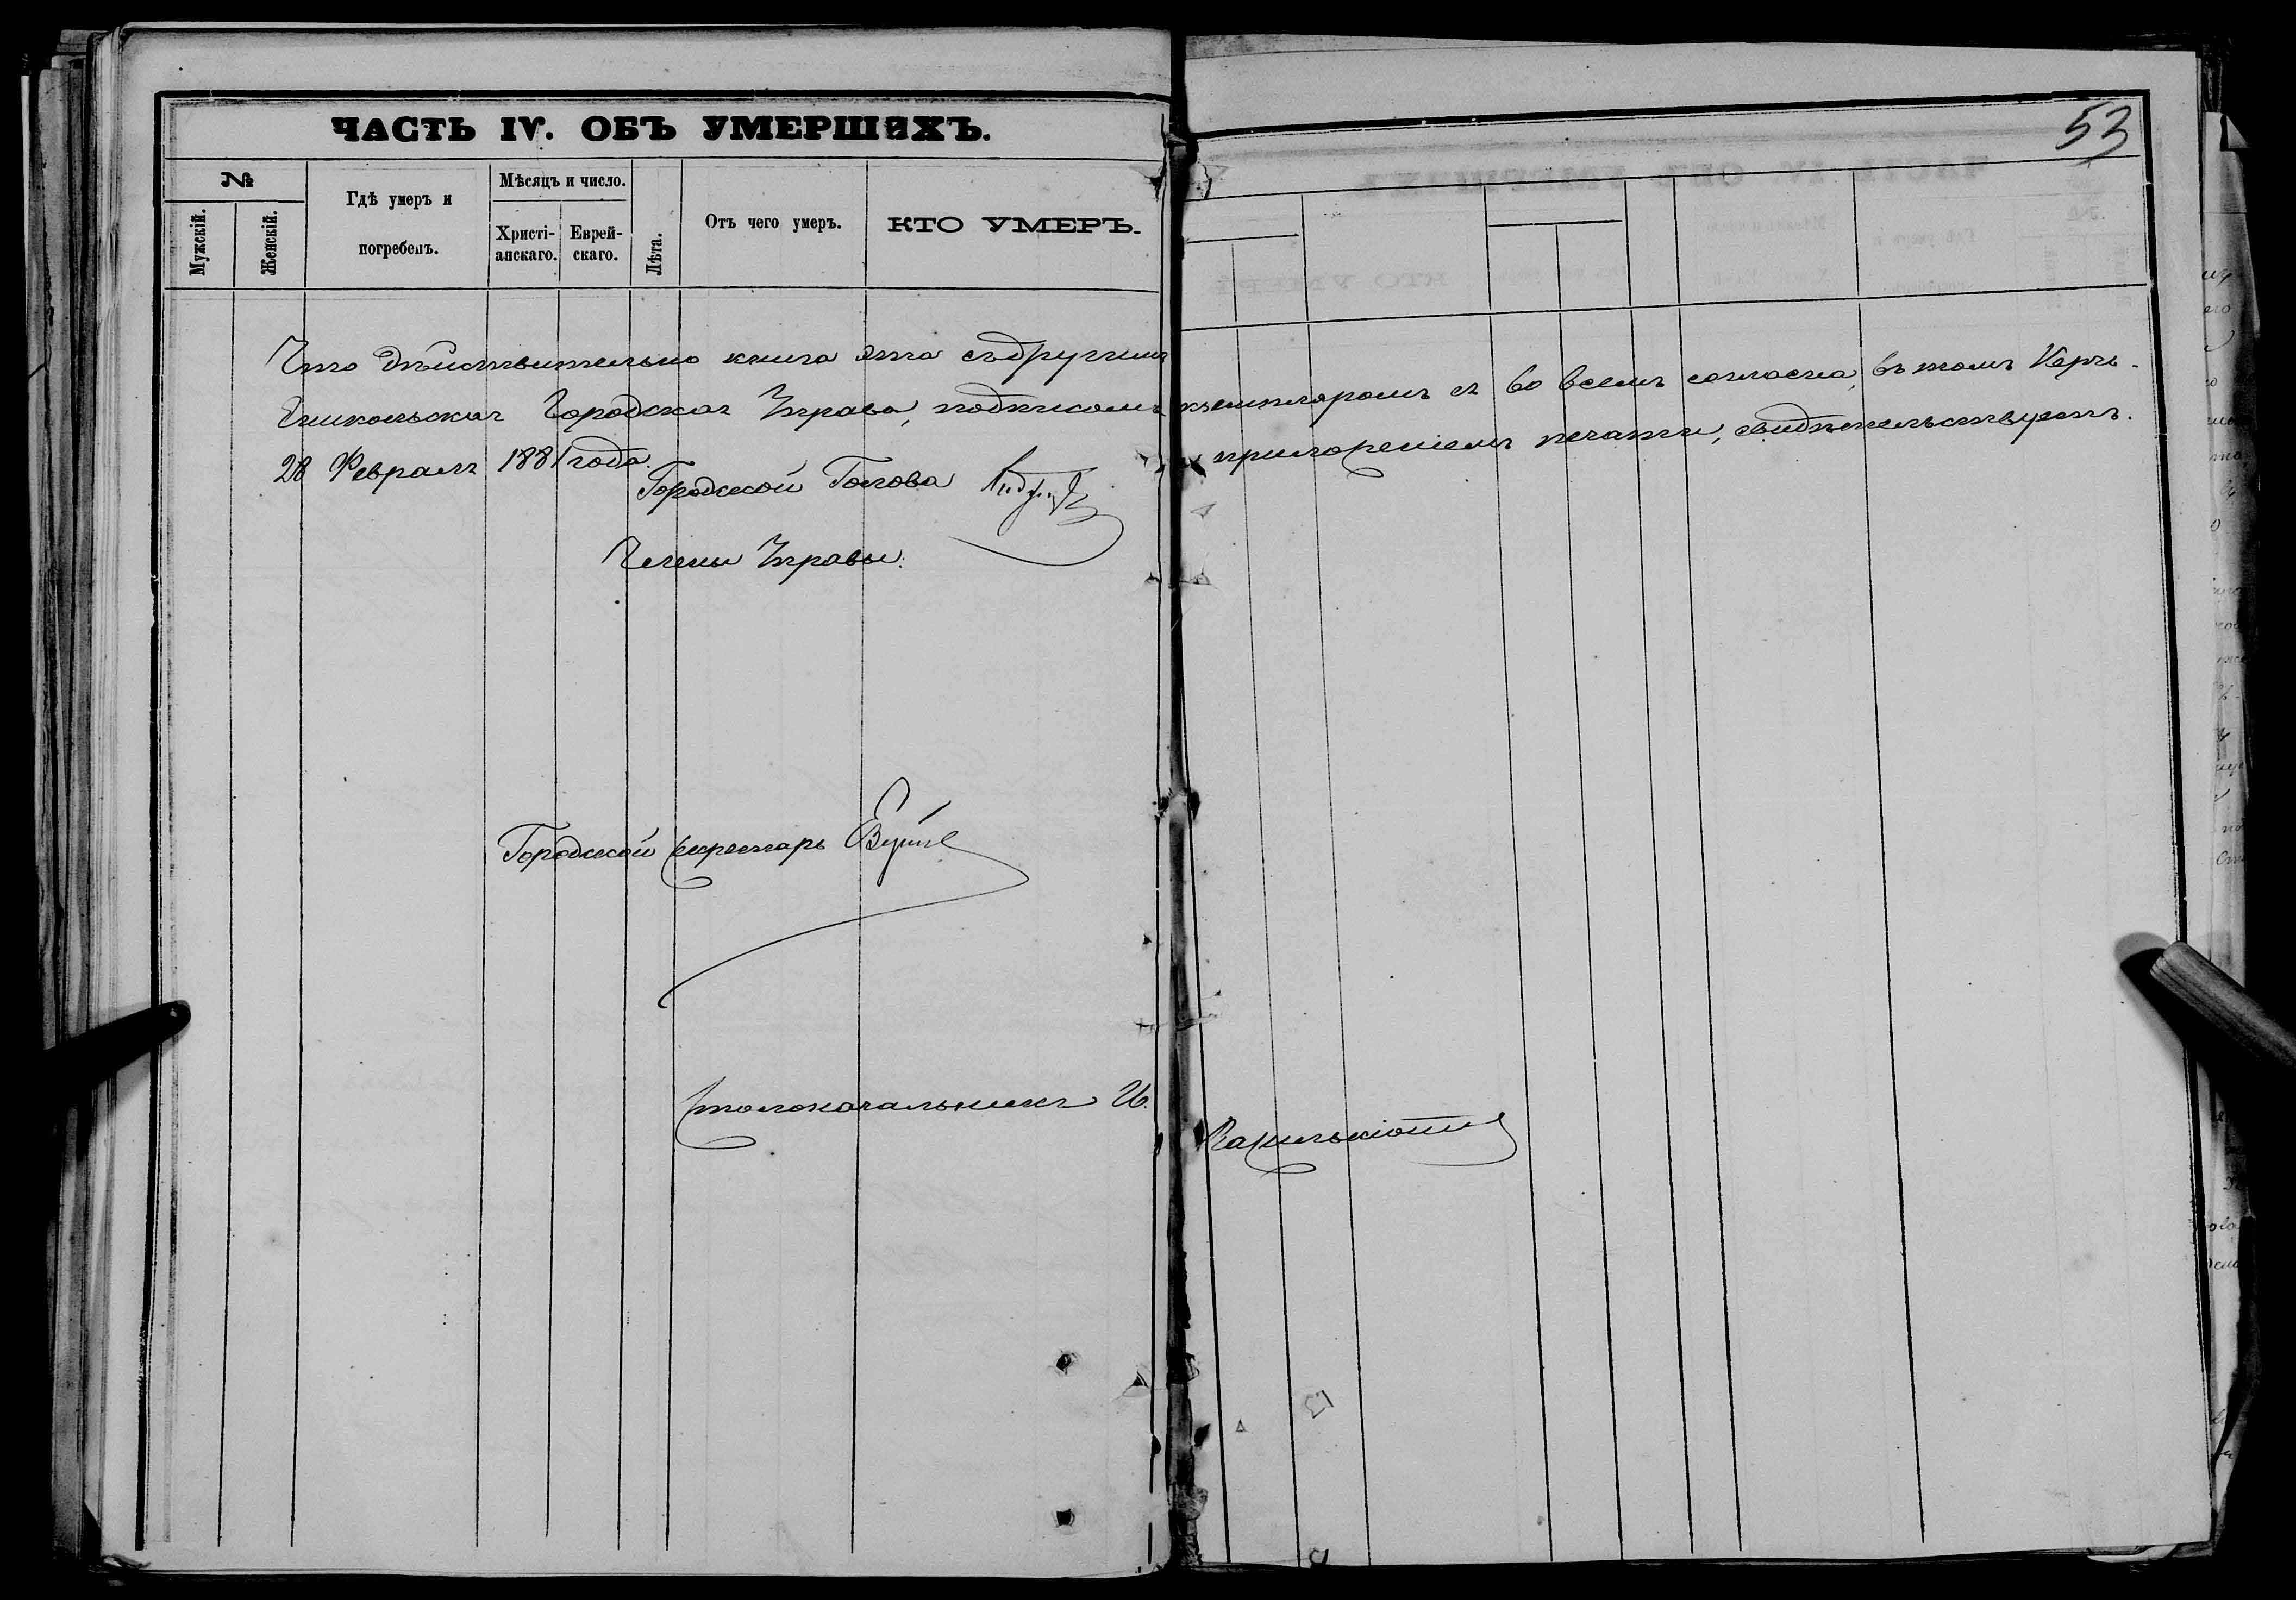 53
ЧАСТЬ IV. ОБЪ УМЕРШИХЪ.
№
Мужскій.
Женскій.
Гдѣ умеръ и погребенъ.
Мѣсяцъ и число.
Христіанскаго.
Еврейскаго.
Лѣта.
Отъ чего умеръ.
КТО УМЕРЪ.
Что дѣйствительно книга эта съ другимъ экземпляромъ во всемъ согласна, въ томъ Керчь-
Еникольская Городская Управа, подписомъ и приложеніемъ печати, свидѣтельствуетъ.
28 Февраля 1881 года.
Городской Голова
Члены Управы:
Городской Секретарь
Столоначальникъ И.